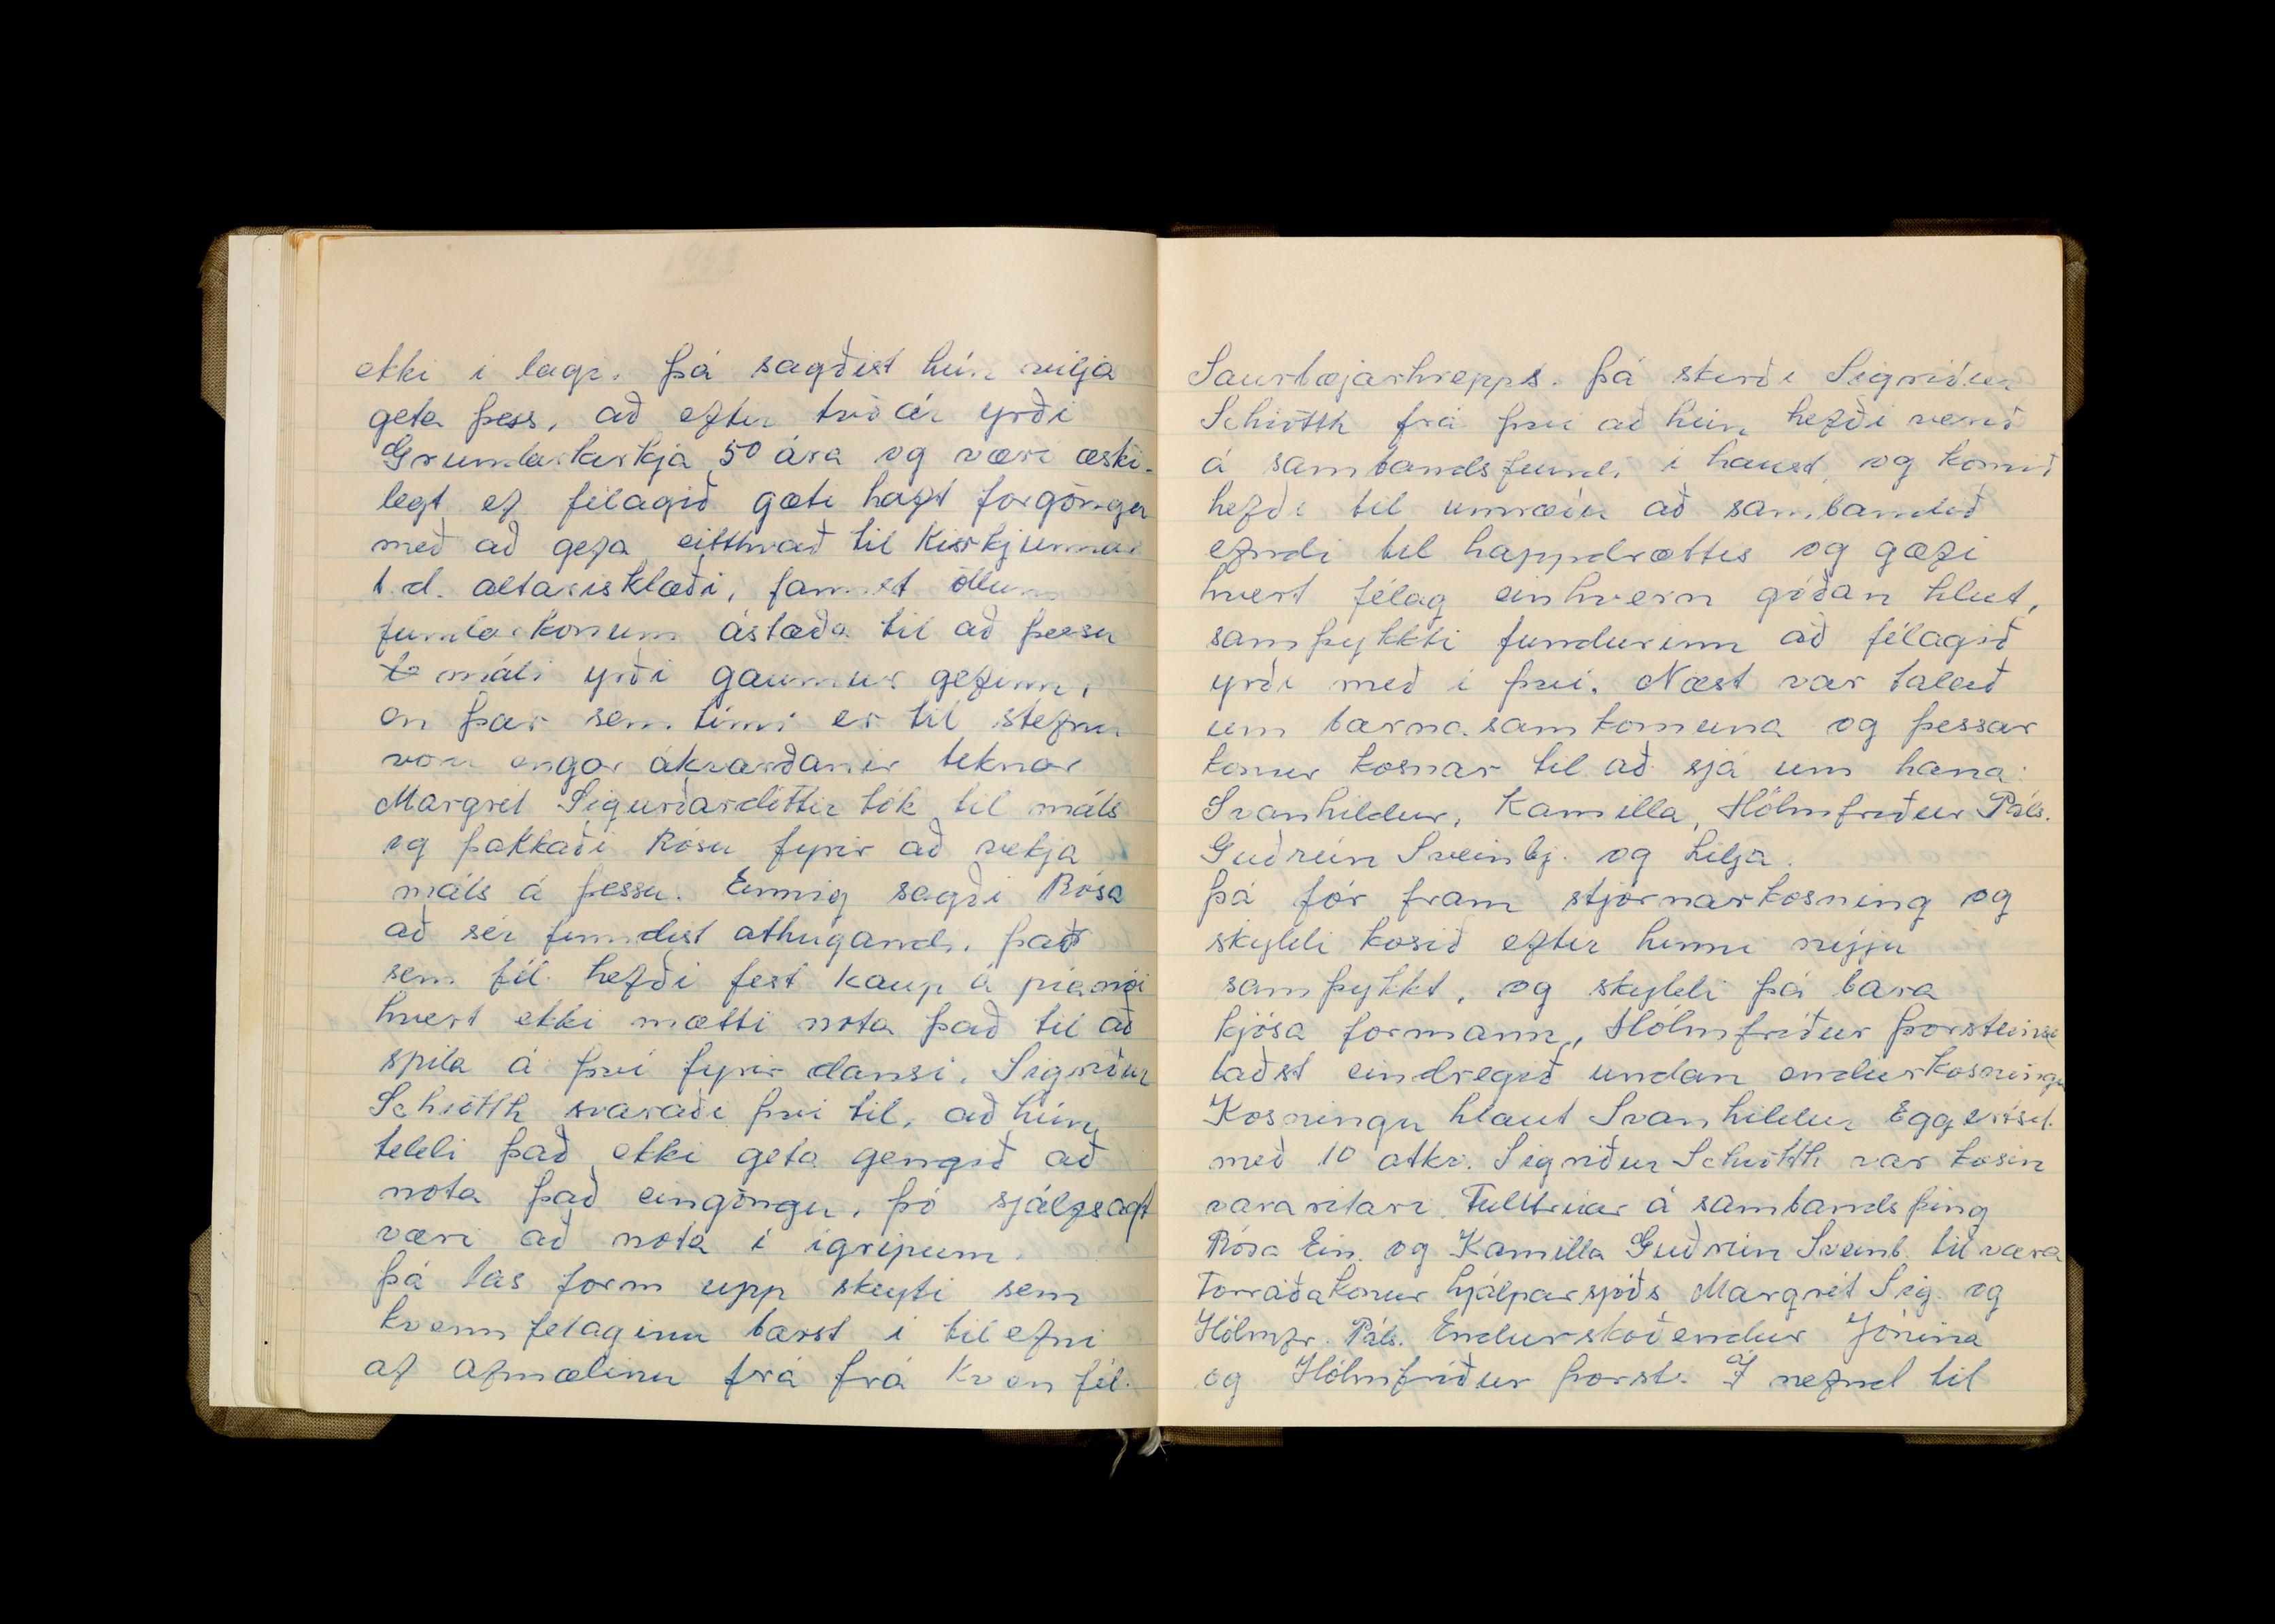 ekki í lagi. Þá sagðist hún vilja
geta þess, að eftir tvö ár yrði
Grundarkirkja 50 ára og væri æski-
legt ef félagið gæti haft forgöngu
með að gefa eitthvað til Kirkjunnar
t.d. altarisklæði, fannst öllum
fundarkonum ástæða til að þessu
máli yrði gaumur gefinn,
en þar sem tími er til stefnu
voru engar ákvarðanir teknar
Margrét Sigurðardóttir tók til máls
og þakkaði Rósu fyrir að vekja
máls á þessu. Einnig sagði Rósa
að sér fyndist athugandi, það
sem fél. hefði fest kaup á píanói
hvert ekki mætti nota það til að
spila á því fyrir dansi. Sigríður
Schiöth svaraði því til, að hún
teldi það ekki geta gengið að
nota það eingöngu, þó sjálfsagt
væri að nota í ígripum.
Þá las form upp skeyti sem
kvennfelaginu barst í tilefni
af afmælinu frá frá Kvenfél.
Saurbæjarhrepps. Þá sterði Sigríður
Schiöth frá því að hún hefði verið
á sambandsfundi í haust, og komið
hefði til umræðu að sambandið
efndi til happdrættis og gæfi
hvert félag einhvern góðan hlut,
samþykkti fundurinn að félagið
yrði með í því. Næst var talað
um barnasamkomuna og þessar
konur kosnar til að sjá um hana:
Svanhildur, Kamilla, Hólmfríður Páls.
Guðrún Sveinbj. og Lilja.
Þá fór fram stjórnarkosning og
skyldi kosið eftir hinni nýju
samþykkt, og skyldi þá bara
kjósa formann, Hólmfríður Þorsteinsd
baðst eindregið undan endurkosningu
Kosningu hlaut Svanhildur Eggertsd.
með 10 atkv. Sigríður Schiöth var kosin
vararitari. Fulltrúar á sambandsþing
Rósa Ein. og Kamilla Guðrún Sveinb. til vara
Forráðakonur hjálparsjóðs Margrét Sig. og
Hólmfr. Páls. Endurskoðendur Jónína
og Hólmfríður Þorst. Í nefnd til